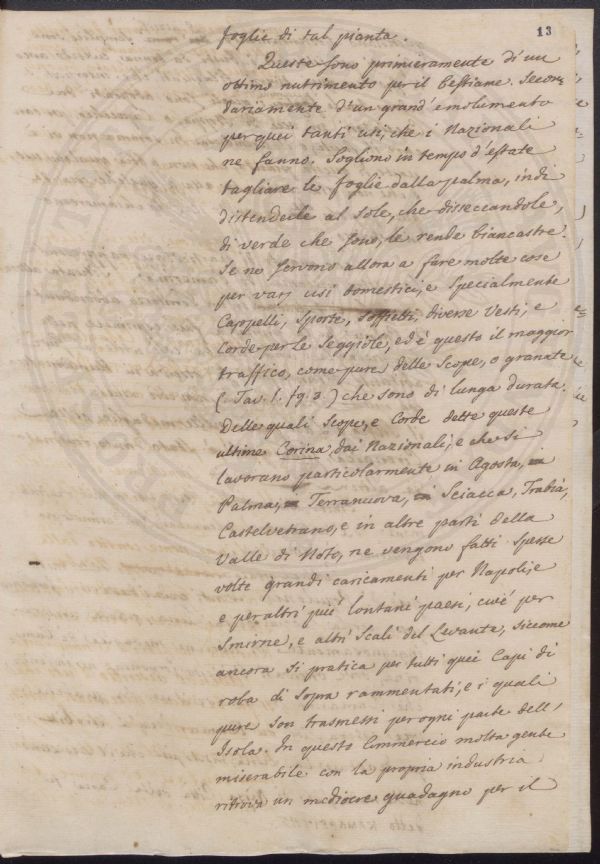 13
foglie di tal pianta.
Queste sono primieramente d'un
ottimo nutrimento per il bestiame. Secon=
dariamente d'un grand'emolumento
per quei tanti usi, che i Nazionali
ne fanno. Sogliono in tempo d'estate
tagliare le foglie dalla palma, indi
distenderle al Sole, che disseccandole,
di verde che sono, le rende biancastre.
Se ne servono allora a fare molte cose
per varj usi domestici, e specialmente
Cappelli, Sporte, Soffietti, diverse Vesti, e
Corde per le Seggiole, ed è questo il maggior
traffico, come pure delle Scope, o granate
(Tav. I. fg. 3.) che sono di lunga durata.
Delle quali Scope, e Corde dette queste
ultime Corina dai Nazionali, e che si
lavorano particolarmente in Agosta, in
Palma, in Terranuova, in Sciacca, Trabia,
Castelvetrano, e in altre parti della
Valle di Noto, ne vengono fatti spesse
volte grandi caricamenti per Napoli, e
e per altri più lontani paesi, cioè per
Smirne, e altri Scali del Levante, siccome
ancora si pratica per tutti quei Capi di
roba di sopra rammentati, e i quali
pure son trasmessi per ogni parte dell'
Isola. In questo Commercio molta gente
miserabile con la propria industria
ritrova un mediocre guadagno per il